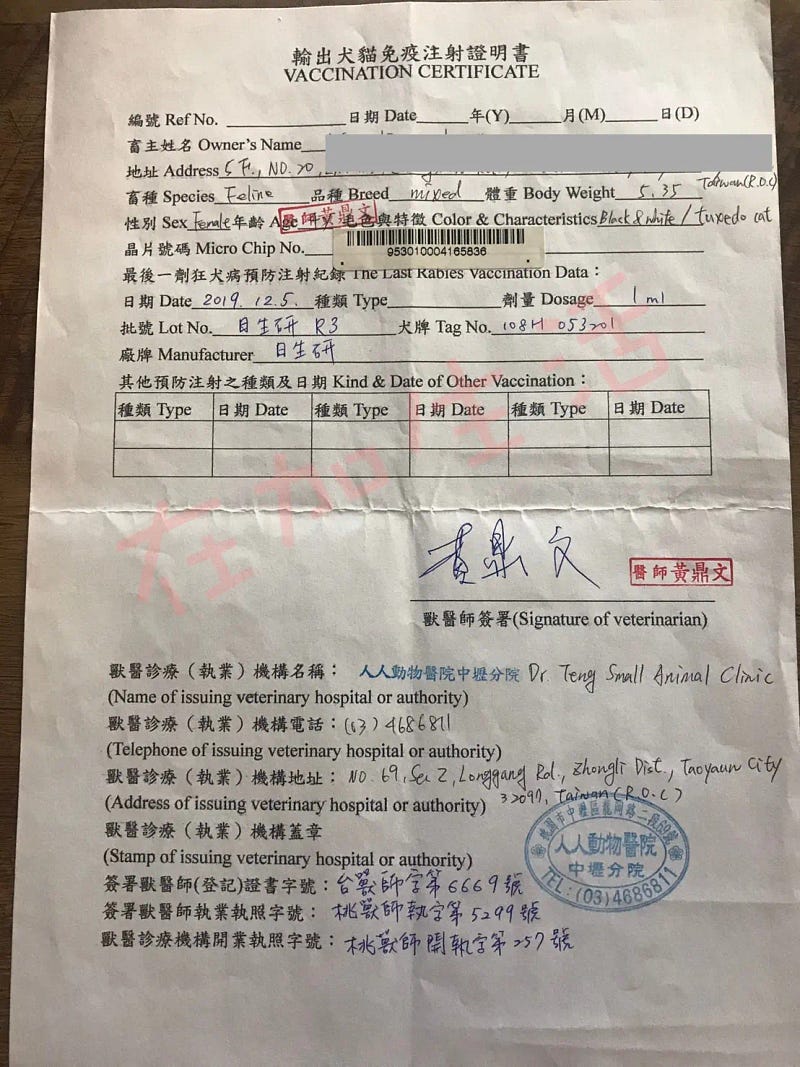 輸出犬貓免疫注射證明書
VACCINATION CERTIFICATE
編號 Ref No. 日期 Date 年(Y) 月(M) 日(D)
畜主姓名 Owner's Name
地址 Address 5F., NO. 20, Taiwan(R.O.C)
畜種 Species Feline 品種 Breed mixed 體重 Body Weight 5.35
性別 Sex Female 年齡 Age 毛色與特徵 Color & Characteristics Black & white / tuxedo cat
醫師黃鼎文
晶片號碼 Micro Chip No. 953010004165836
最後一劑狂犬病預防注射紀錄 The Last Rabies Vaccination Data：
日期 Date 2019. 12. 5. 種類 Type 劑量 Dosage 1 ml
批號 Lot No. 日生研 R3 犬牌 Tag No. 108H 053201
廠牌 Manufacturer 日生研
其他預防注射之種類及日期 Kind & Date of Other Vaccination：
種類 Type 日期 Date 種類 Type 日期 Date 種類 Type 日期 Date
在加生活
黃鼎文
醫師黃鼎文
獸醫師簽署(Signature of veterinarian)
獸醫診療（執業）機構名稱： 人人動物醫院中壢分院 Dr. Teng Small Animal Clinic
(Name of issuing veterinary hospital or authority)
獸醫診療（執業）機構電話：(03) 4686811
(Telephone of issuing veterinary hospital or authority)
獸醫診療（執業）機構地址： NO. 69, Sec 2, Longgang Rd., Zhongli Dist., Taoyaun City
(Address of issuing veterinary hospital or authority) 32097, Taiwan(R.O.C)
獸醫診療（執業）機構蓋章
(Stamp of issuing veterinary hospital or authority)
桃園市中壢區龍岡路二段69號
人人動物醫院
中壢分院
TEL:(03)4686811
簽署獸醫師(登記)證書字號：台獸師字第6669號
簽署獸醫師執業執照字號： 桃獸師執字第5299號
獸醫診療機構開業執照字號： 桃獸師開執字第257號